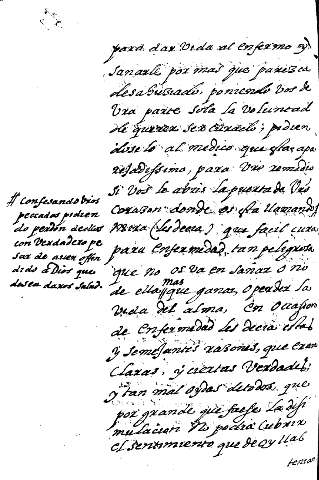 para dar Vida al Enfermo y
Sanarle por mas que parezca
desahuziado, poniendo vos de
Vra parte sola la Voluntad
de querer ser curado; pedien
doselo al medico que esta apa
rejadissimo, para Vro remedio
si Vos le abris la puerta de Vro
Corazon donde os esta llamando
Mira (les decia) que facil cura
para Enfermedad tan peligrosa
que no os va en Sanar o no
de ella mas que ganar, o perder la
Vida del alma, En Occasion
de Enfermedad les decia estas
y Semejantes razones, que eran
Claras, y ciertas Verdades;
y tan mal oydas de todos, que
por grande que fuesse la disi
mulacion No podia Cubrir
el Sentimiento que de oyllas
tenian
# Confesando Vros
peccados pidien
do perdon de ellos
con Verdadero pe
sar de aver offen
dido a Dios que
desea daros Salud.